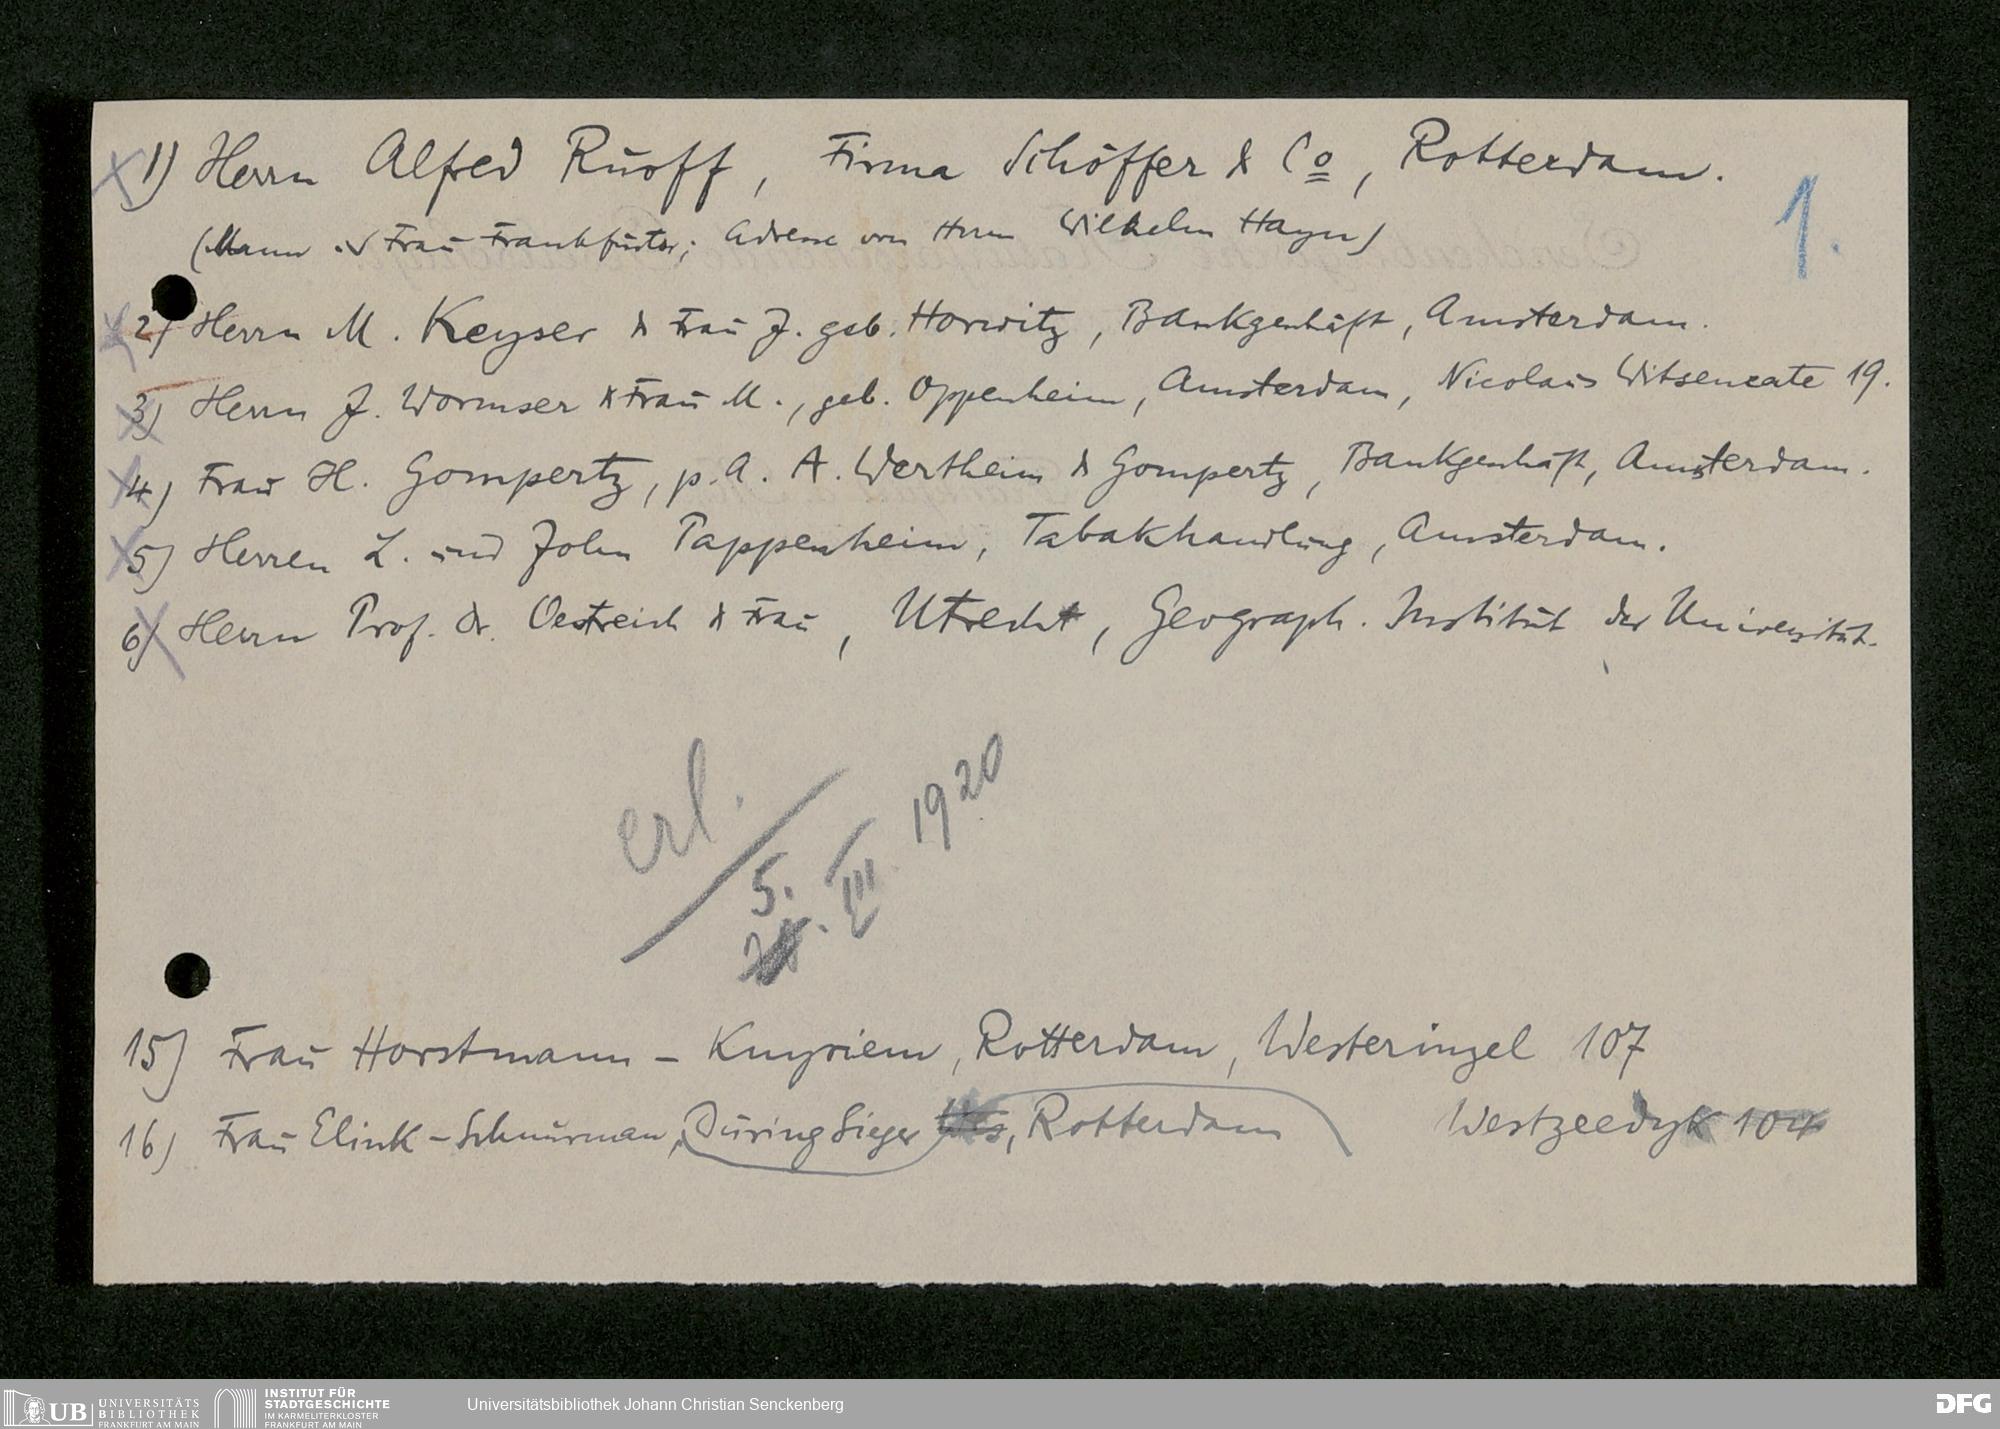 1) Herrn Alfred Ruoff, Firma Schöffer & Co, Rotterdam.
1.
(Mann u. Frau Frankfurter; Adresse von Herrn Wilhelm Hayn)
2) Herrn M. Keyser & Frau J. geb. Horwitz, Bankgeschäft, Amsterdam.
3) Herrn J. Wormser & Frau M., geb. Oppenheim, Amsterdam, Nicolaus Witsencate 19.
4) Frau H. Gompertz, p. A. A. Wertheim & Gompertz, Bankgeschäft, Amsterdam.
5) Herren L. und John Pappenheim, Tabakhandlung, Amsterdam.
6) Herrn Prof. Dr. Oestreich & Frau, Utrecht, Geograph. Institut der Universität.
erl.
5. III 1920
15) Frau Horstmann - Knyriem, Rotterdam, Westeringel 107
16) Frau Elink - Schuurman, Düring Sieger, Rotterdam Westzeedyk 104
UB UNIVERSITÄTS
BIBLIOTHEK
FRANKFURT AM MAIN
INSTITUT FÜR
STADTGESCHICHTE
IM KARMELITERKLOSTER
FRANKFURT AM MAIN
Universitätsbibliothek Johann Christian Senckenberg
DFG